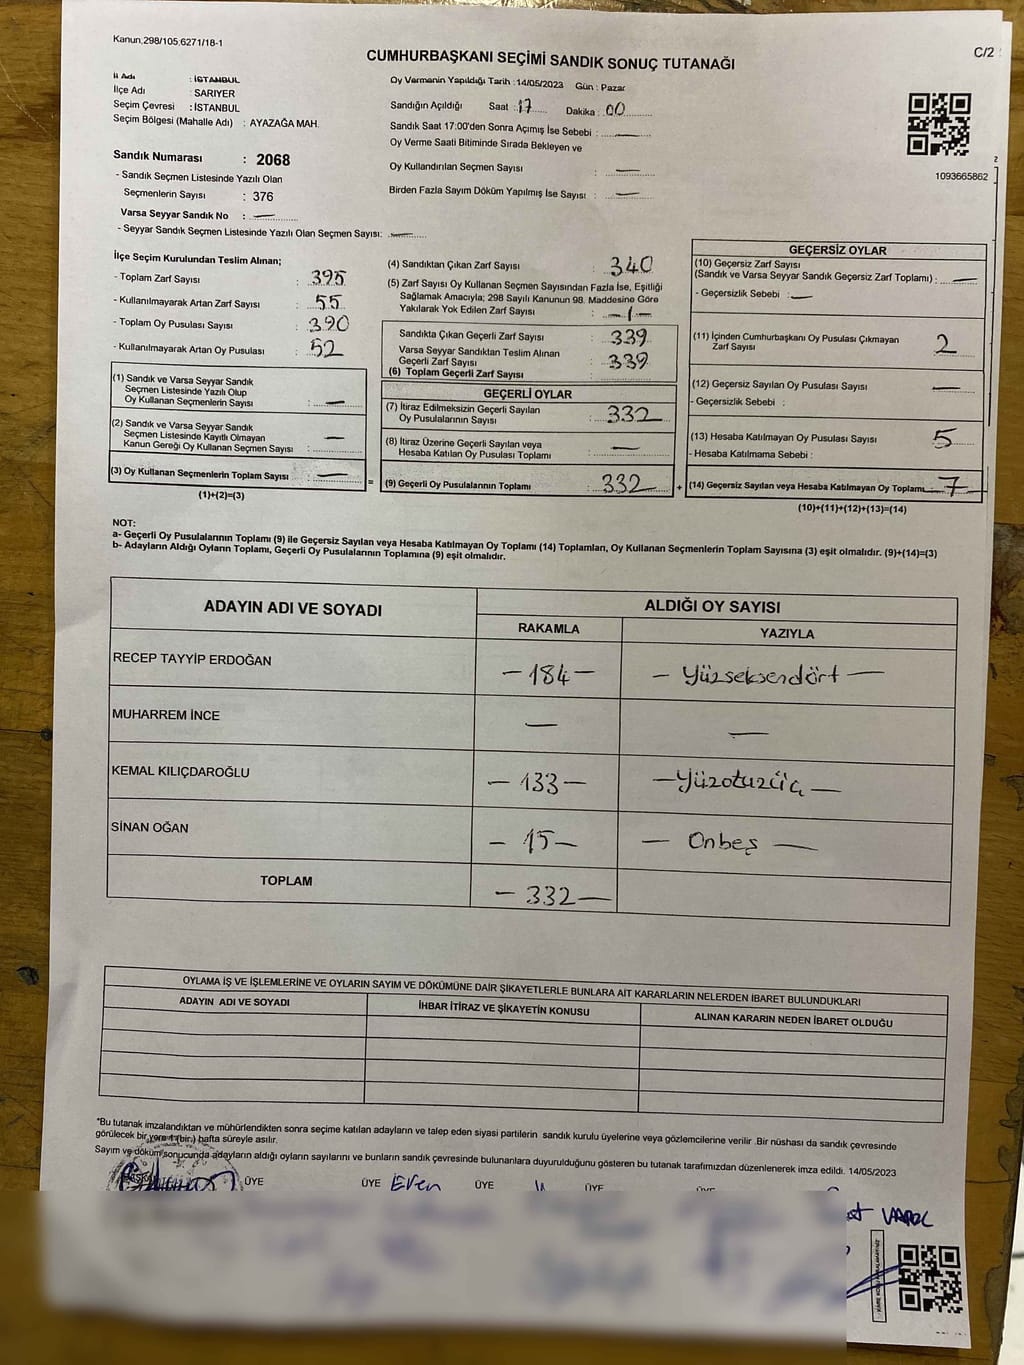 Kanun,298/105;6271/18-1
C/2
CUMHURBAŞKANI SEÇİMİ SANDIK SONUÇ TUTANAĞI
İl Adı : İSTANBUL
İlçe Adı : SARIYER
Seçim Çevresi : İSTANBUL
Seçim Bölgesi (Mahalle Adı) : AYAZAĞA MAH.
Sandık Numarası : 2068
- Sandık Seçmen Listesinde Yazılı Olan
Seçmenlerin Sayısı : 376
Varsa Seyyar Sandık No : —
- Seyyar Sandık Seçmen Listesinde Yazılı Olan Seçmen Sayısı: —
Oy Vermenin Yapıldığı Tarih : 14/05/2023 Gün : Pazar
Sandığın Açıldığı Saat : 17 Dakika : 00
Sandık Saat 17:00'den Sonra Açımış İse Sebebi : —
Oy Verme Saati Bitiminde Sırada Bekleyen ve
Oy Kullandırılan Seçmen Sayısı : —
Birden Fazla Sayım Döküm Yapılmış İse Sayısı : —
2
1093665862
İlçe Seçim Kurulundan Teslim Alınan;
- Toplam Zarf Sayısı : 395
- Kullanılmayarak Artan Zarf Sayısı : 55
- Toplam Oy Pusulası Sayısı : 390
- Kullanılmayarak Artan Oy Pusulası : 52
(1) Sandık ve Varsa Seyyar Sandık
Seçmen Listesinde Yazılı Olup
Oy Kullanan Seçmenlerin Sayısı : —
(2) Sandık ve Varsa Seyyar Sandık
Seçmen Listesinde Kayıtlı Olmayan
Kanun Gereği Oy Kullanan Seçmen Sayısı : —
(3) Oy Kullanan Seçmenlerin Toplam Sayısı : —
(1)+(2)=(3)
=
(4) Sandıktan Çıkan Zarf Sayısı : 340
(5) Zarf Sayısı Oy Kullanan Seçmen Sayısından Fazla İse, Eşitliği
Sağlamak Amacıyla; 298 Sayılı Kanunun 98. Maddesine Göre
Yakılarak Yok Edilen Zarf Sayısı : -1-
Sandıkta Çıkan Geçerli Zarf Sayısı : 339
Varsa Seyyar Sandıktan Teslim Alınan
Geçerli Zarf Sayısı : 339
(6) Toplam Geçerli Zarf Sayısı
GEÇERLİ OYLAR
(7) İtiraz Edilmeksizin Geçerli Sayılan
Oy Pusulalarının Sayısı : 332
(8) İtiraz Üzerine Geçerli Sayılan veya
Hesaba Katılan Oy Pusulası Toplamı : —
(9) Geçerli Oy Pusulalarının Toplamı : 332
+
GEÇERSİZ OYLAR
(10) Geçersiz Zarf Sayısı
(Sandık ve Varsa Seyyar Sandık Geçersiz Zarf Toplamı) : —
- Geçersizlik Sebebi : —
(11) İçinden Cumhurbaşkanı Oy Pusulası Çıkmayan
Zarf Sayısı 2
(12) Geçersiz Sayılan Oy Pusulası Sayısı —
- Geçersizlik Sebebi :
(13) Hesaba Katılmayan Oy Pusulası Sayısı 5
- Hesaba Katılmama Sebebi :
(14) Geçersiz Sayılan veya Hesaba Katılmayan Oy Toplamı 7
(10)+(11)+(12)+(13)=(14)
NOT:
a- Geçerli Oy Pusulalarının Toplamı (9) ile Geçersiz Sayılan veya Hesaba Katılmayan Oy Toplamı (14) Toplamları, Oy Kullanan Seçmenlerin Toplam Sayısına (3) eşit olmalıdır. (9)+(14)=(3)
b- Adayların Aldığı Oyların Toplamı, Geçerli Oy Pusulalarının Toplamına (9) eşit olmalıdır.
ADAYIN ADI VE SOYADI
ALDIĞI OY SAYISI
RAKAMLA
YAZIYLA
RECEP TAYYİP ERDOĞAN — 184 — — Yüzseksendört —
MUHARREM İNCE — —
KEMAL KILIÇDAROĞLU — 133 — — Yüzotuzüç —
SİNAN OĞAN — 15 — — Onbeş —
TOPLAM — 332 —
OYLAMA İŞ VE İŞLEMLERİNE VE OYLARIN SAYIM VE DÖKÜMÜNE DAİR ŞİKAYETLERLE BUNLARA AİT KARARLARIN NELERDEN İBARET BULUNDUKLARI
ADAYIN ADI VE SOYADI
İHBAR İTİRAZ VE ŞİKAYETİN KONUSU
ALINAN KARARIN NEDEN İBARET OLDUĞU
*Bu tutanak imzalandıktan ve mühürlendikten sonra seçime katılan adayların ve talep eden siyasi partilerin sandık kurulu üyelerine veya gözlemcilerine verilir .Bir nüshası da sandık çevresinde
görülecek bir yere 1 (bir) hafta süreyle asılır.
Sayım ve döküm sonucunda adayların aldığı oyların sayılarını ve bunların sandık çevresinde bulunanlara duyurulduğunu gösteren bu tutanak tarafımızdan düzenlenerek imza edildi. 14/05/2023
ÜYE ÜYE Eren ÜYE ÜYE